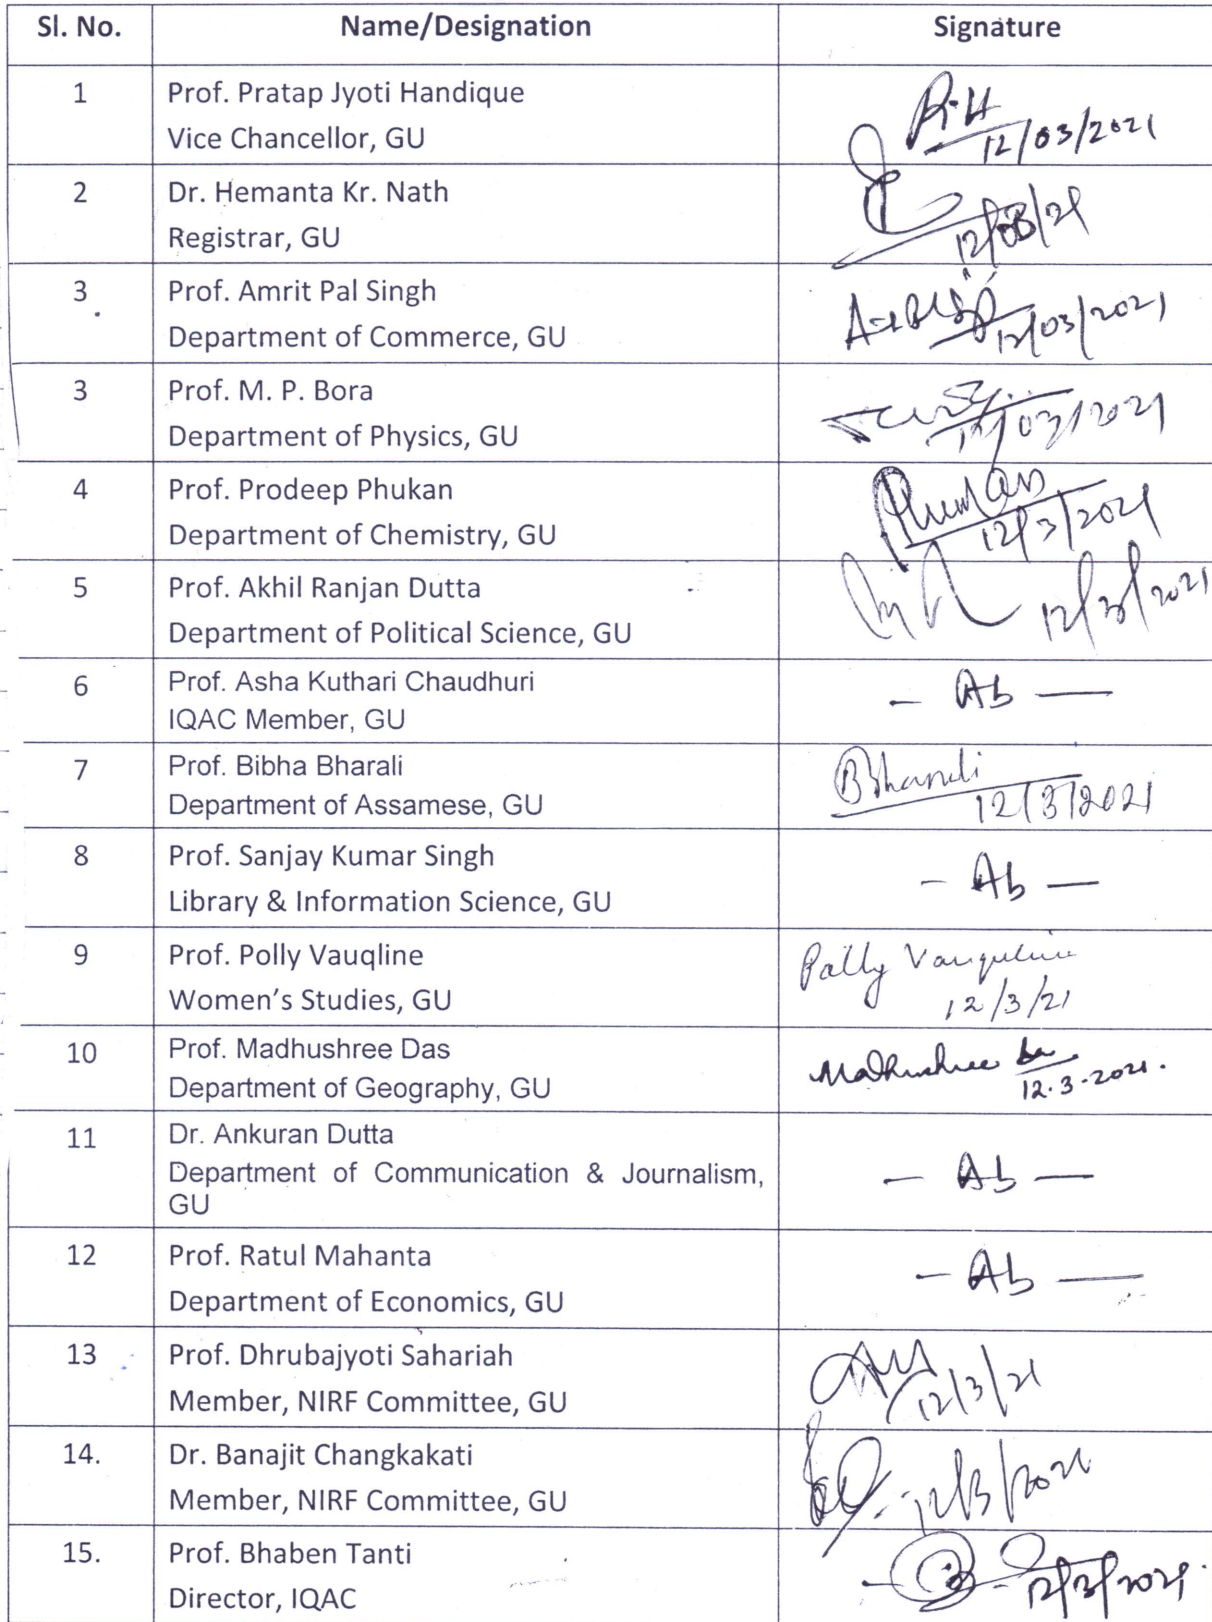 Sl. No. Name/Designation Signature
1 Prof. Pratap Jyoti Handique
Vice Chancellor, GU
12/03/2021
2 Dr. Hemanta Kr. Nath
Registrar, GU
12/03/21
3 Prof. Amrit Pal Singh
Department of Commerce, GU
12/03/2021
3 Prof. M. P. Bora
Department of Physics, GU
12/03/2021
4 Prof. Prodeep Phukan
Department of Chemistry, GU
Phukan
12/3/2021
5 Prof. Akhil Ranjan Dutta
Department of Political Science, GU
12/3/2021
6 Prof. Asha Kuthari Chaudhuri
IQAC Member, GU
- Ab -
7 Prof. Bibha Bharali
Department of Assamese, GU
BBharali
12/3/2021
8 Prof. Sanjay Kumar Singh
Library & Information Science, GU
- Ab -
9 Prof. Polly Vauqline
Women's Studies, GU
Polly Vauquline
12/3/21
10 Prof. Madhushree Das
Department of Geography, GU
Madhushree Das
12.3.2021.
11 Dr. Ankuran Dutta
Department of Communication & Journalism,
GU
- Ab -
12 Prof. Ratul Mahanta
Department of Economics, GU
- Ab -
13 Prof. Dhrubajyoti Sahariah
Member, NIRF Committee, GU
12/3/21
14. Dr. Banajit Changkakati
Member, NIRF Committee, GU
12/3/2021
15. Prof. Bhaben Tanti
Director, IQAC
12/3/2021